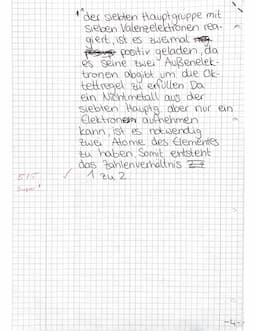 der siebten Hauptgruppe mit
sieben Valenzelektronen rea-
giert, ist es zweimal
positiv geladen, da
es seine zwei Außenelek-
tronen abgibt um die Ok-
tettregel zu erfüllen Da
ein Nichtmetall aus der
siebten Hauptg. aber nur ein
Elektron aufnehmen
kann, ist es notwendig
zwei Atome des Elementes
zu haben. Somit entsteht
das Zahlenverhältnis
1 zu 2
5/5
super!
-4-